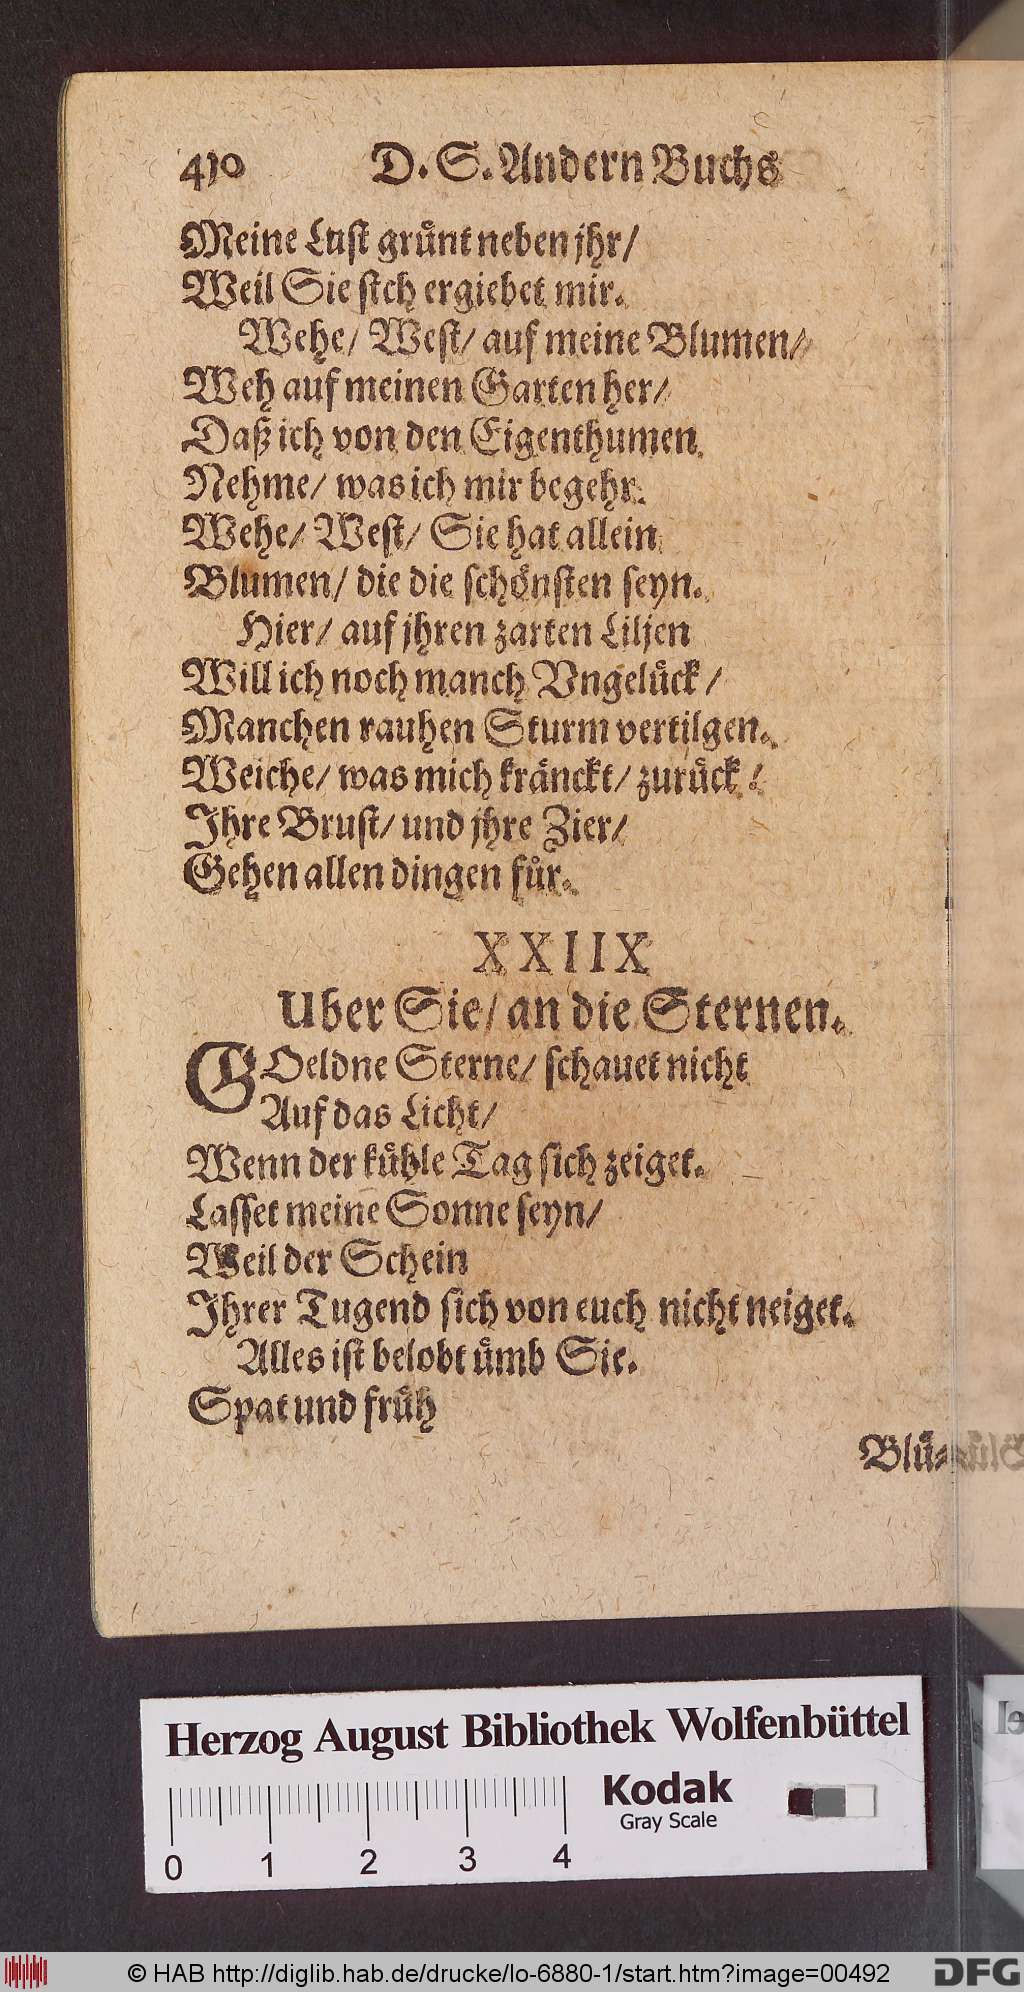 410 D. S. Andern Buchs
Meine Lust gruͤnt neben jhr/
Weil Sie sich ergiebet mir.
Wehe/ West/ auf meine Blumen/
Weh auf meinen Garten her/
Daß ich von den Eigenthumen
Nehme/ was ich mir begehr.
Wehe/ West/ Sie hat allein
Blumen/ die die schoͤnsten seyn.
Hier/ auf jhren zarten Liljen
Will ich noch manch Vngeluͤck/
Manchen rauhen Sturm vertilgen.
Weiche/ was mich kraͤnckt/ zuruͤck!
Ihre Brust/ und jhre Zier/
Gehen allen dingen fuͤr.
XXIIX
Uber Sie/ an die Sternen.
GOeldne Sterne/ schauet nicht
Auf das Licht/
Wenn der kuͤhle Tag sich zeiget.
Lasset meine Sonne seyn/
Weil der Schein
Ihrer Tugend sich von euch nicht neiget.
Alles ist belobt uͤmb Sie.
Spat und fruͤh
Bluͤ-
Herzog August Bibliothek Wolfenbüttel
Kodak
Gray Scale
0 1 2 3 4
© HAB http://diglib.hab.de/drucke/lo-6880-1/start.htm?image=00492
DFG